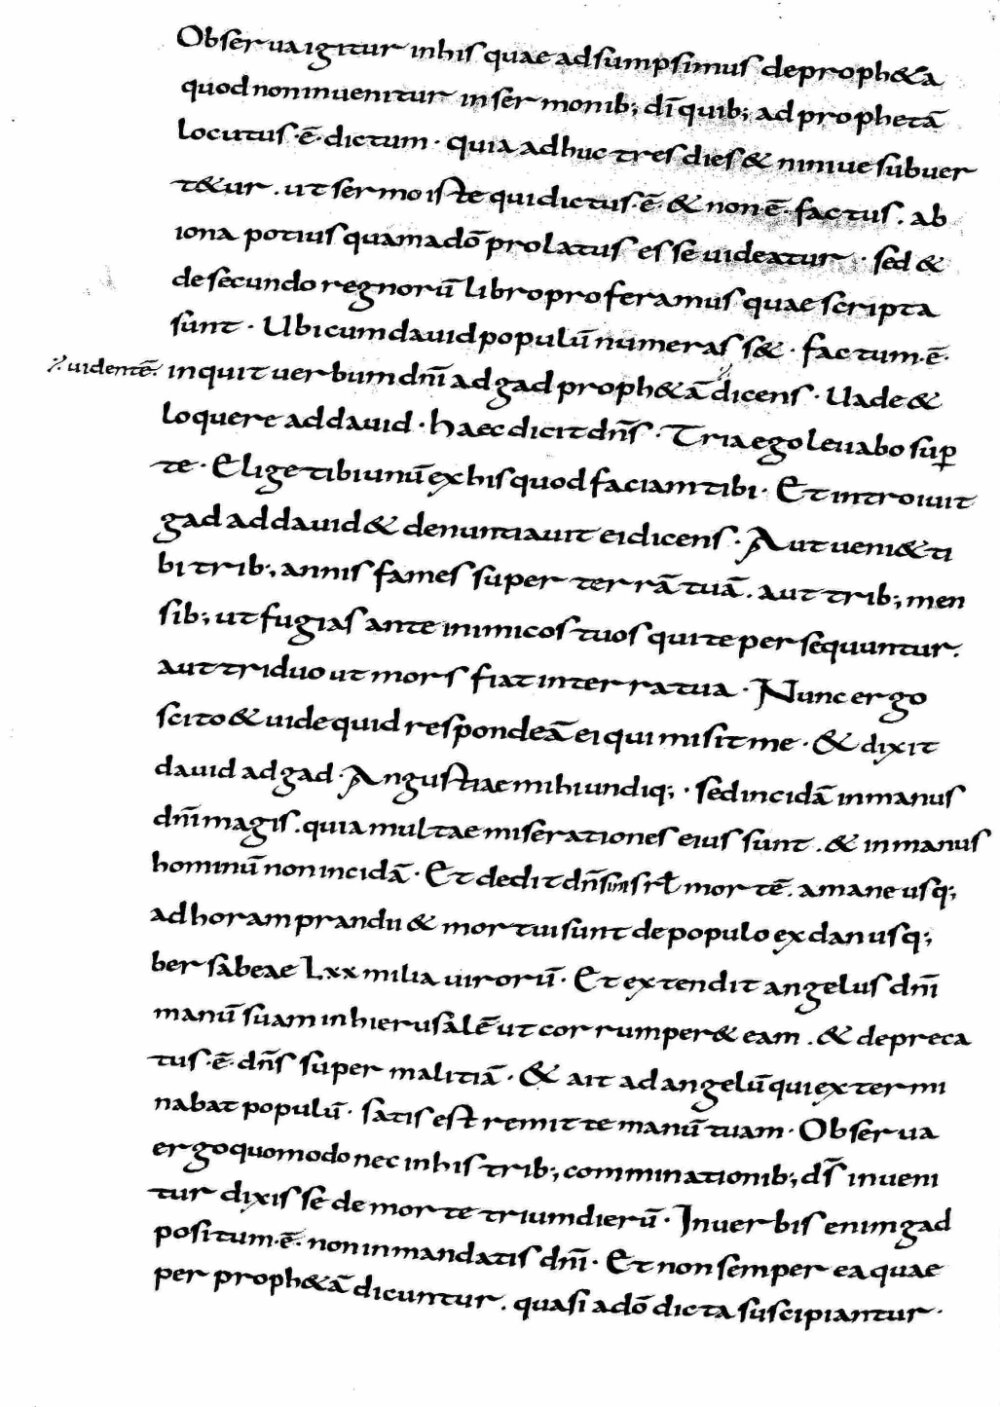 Obserua igitur inhis quae adsumpsimus deproph&a
quod noninuenitur insermonib; dī quib; ad prophetā
locutus·ē·dictum· quia adhuc tres dies & niniue subuer
t&ur. ut sermo iste qui dictus·ē· & non·ē· factus. ab
iona potius quam adō prolatus esse uideatur· sed &
de secundo regnorū libro proferamus quae scripta
sunt· Ubi cum dauid populū numerass&· factum·ē·
inquit uerbum dnī ad gad proph&ā dicens· Uade &
⁊· uidentē·
loquere ad dauid· haec dicit dns̄· Tria ego leuabo sup̄
te· Elige tibi unū ex his quod faciam tibi· Et introiuit
gad ad dauid & denuntiauit ei dicens· Aut ueni& ti
bi trib; annis fames super terrā tuā. aut trib; men
sib; ut fugias ante inimicos tuos qui te persequuntur.
aut triduo ut mors fiat in terra tua· Nunc ergo
scito & uide quid respondeā ei qui misit me· & dixit
dauid ad gad· Angustiae mihi undiq;· sed incidā inmanus
dnī magis. quia multae miserationes eius sunt. & inmanus
hominū non incidā· Et dedit dns̄ in isrł mortē. a mane usq;
ad horam prandii & mortui sunt de populo ex dan usq;
bersabeae Lxx milia uirorū· Et extendit angelus dnī
manū suam in hierusalē ut corrumper& eam. & depreca
tus·ē· dns̄ super malitiā· & ait ad angelū qui extermi
nabat populū· satis est remitte manū tuam· Obserua
ergo quomodo nec in his trib; comminationib; ds̄ inueni
tur dixisse de morte trium dierū· In uerbis enim gad
positum·ē· non in mandatis dnī· Et non semper ea quae
per proph&ā dicuntur. quasi adō dicta suscipiantur·